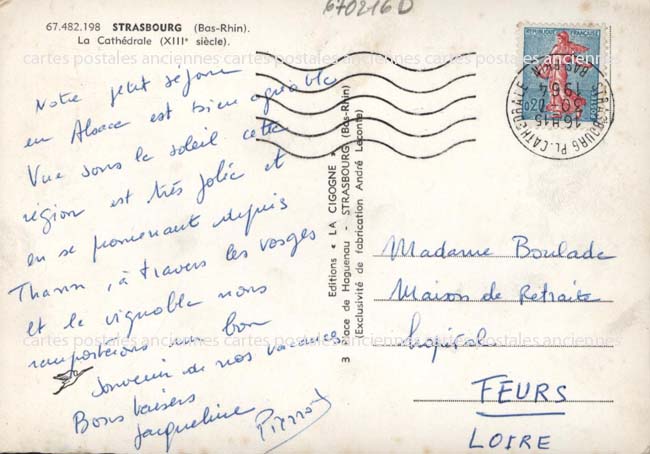 670216D
67.482.198 STRASBOURG (Bas-Rhin).
La Cathédrale (XIIIe siècle).
cartes postales anciennes cartes postales anciennes cartes postales anciennes
Notre petit séjour
en Alsace est bien agréable
Vue sous le soleil cette
région est très jolie et
en se promenant depuis
Thann, à travers les vosges
et le vignoble nous
remporterons un bon
souvenir de nos vacances
Bons baisers
Jacqueline Pierrot
Editions « LA CIGOGNE »
3 place de Haguenau - STRASBOURG (Bas-Rhin)
(Exclusivité de fabrication André Leconte)
REPUBLIQUE FRANÇAISE
STRASBOURG PL. CATHEDRALE
16H15
30
1964
BAS RHIN
Madame Boulade
Maison de Retraite
hôpital
FEURS
LOIRE
cartes postales anciennes cartes postales anciennes cartes postales anciennes